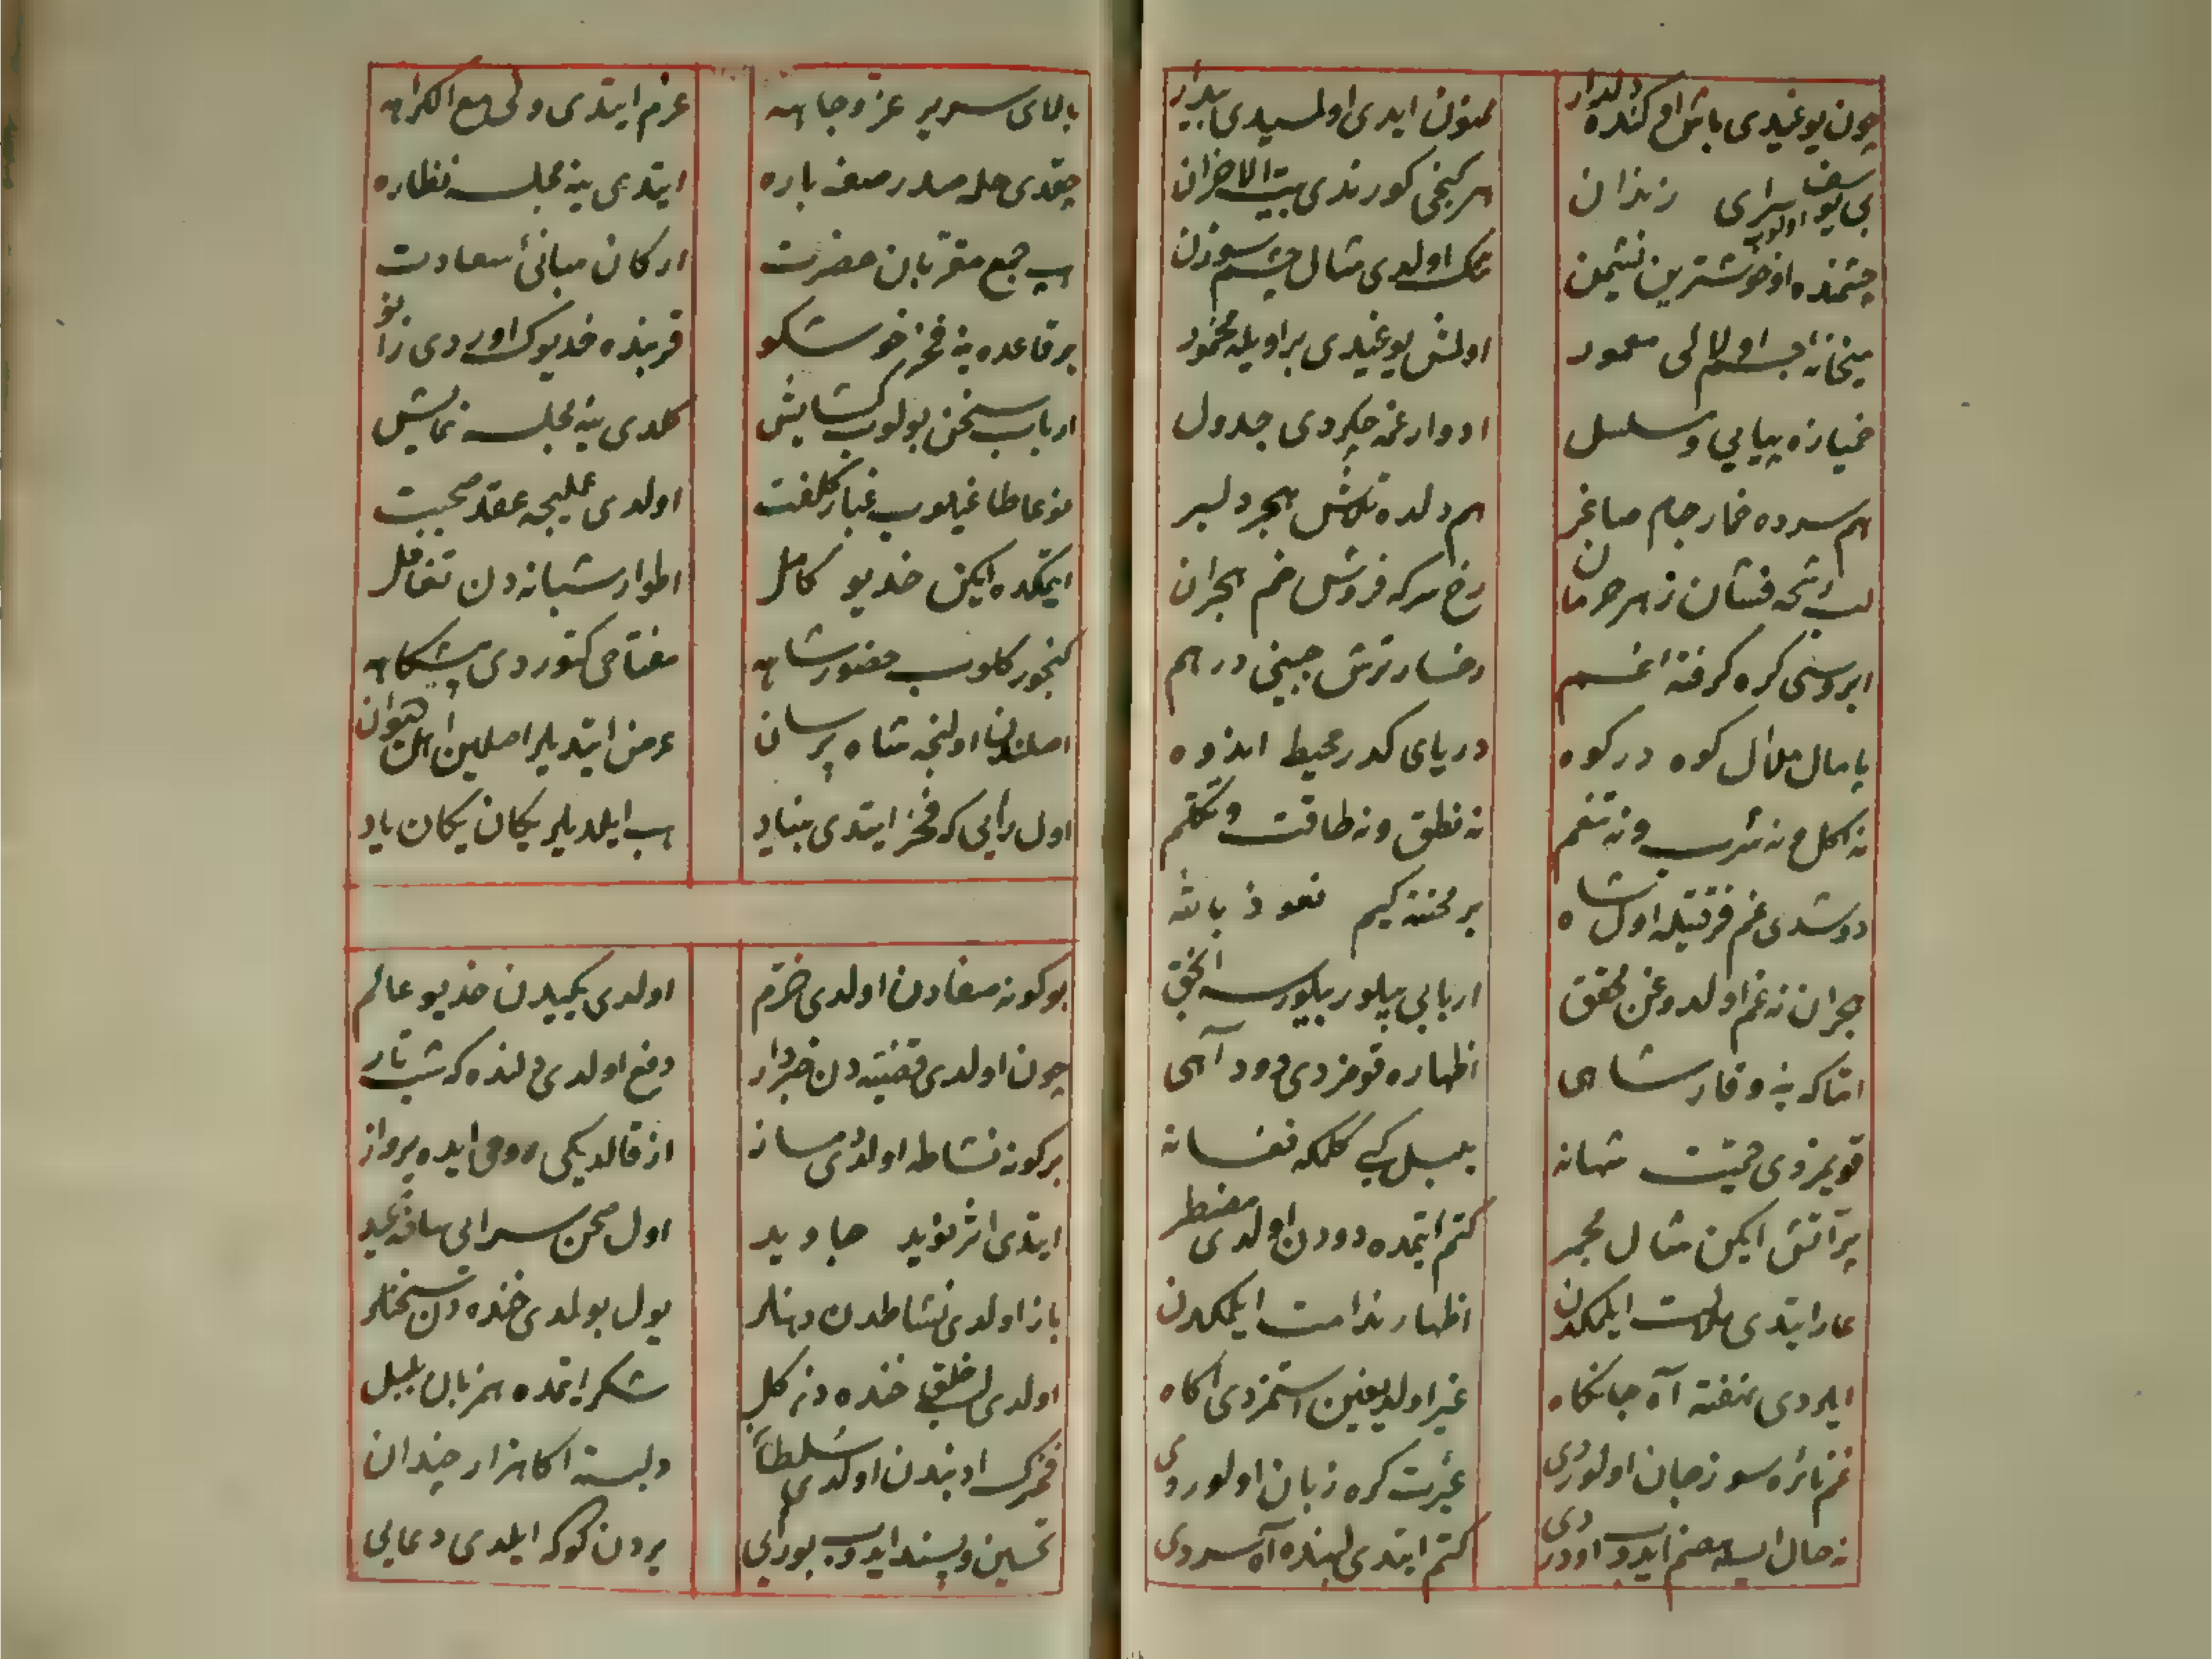 چون یوغیدی باش اوکنده دلدار ممنون ایدی اولسیدی بیدار
بی یوسف اولوب سرای زندان هر کنجی کورندی بیت الاحزان
چشمنده او خوشترین نشیمن تنك اولدی مثال چشم سوزن
میخانهٔ جسم اولالی معمور اولمش یوغیدی بر اویله مخمور
خمیازه پیاپی و مسلسل ادوار غمه چکردی جدول
هم سرده خمار جام ساغر هم دلده تلاش هجر دلبر
لب رشحه فشان زهر حرمان رخ سرکه فروش خم هجران
ابروسی کره کرفتهٔ غم رخسار ترش جبینی درهم
پامال ملال کوه در کوه دریای کدر محیط اندوه
نه اکل و نه شرب و نه تنعم نه نطق و نه طاقت و تکلم
دوشدی غم فرقتیله اول شاه بر محنته کیم نعوذ بالله
هجران نه غم اولدوغن محقق اربابی بیلور بیلورسه الحق
اما که ینه وقار شاهی اظهاره قومزدی دود آهی
قویمزدی حمیت شهانه بلبل کبی کلمکه فغانه
پر آتش ایکن مثال مجمر کتم ایتمده دودن اولدی مضطر
عار ایتدی ملامت ایلمکدن اظهار ندامت ایلمکدن
ایلردی نهفته آه جانکاه غیر اولدیغین استمزدی آکاه
غم نائره سوز جان اولوردی غیرت کره زبان اولوردی
نه حال ایسه هضم ایدوب اودردی کتم ایتدی لبنده آه سردی
بالای سریر عز و جاهه عزم ایتدی ولی مع الکراهه
چقدی هله صدر صفه باره ایتدی ینه مجلسه نظاره
هب جمع مقربان حضرت ارکان مبانئ سعادت
بر قاعده ینه فخر خوشکو قربنده خدیوك اوردی زانو
ارباب سخن بولوب کشایش کلدی ینه مجلسه نمایش
نوعا طاغیلوب غبار کلفت اولدی عملیجه عقد صحبت
ایتمکده ایکن خدیو کامل اطوار شبانه دن تغافل
کنجور کلوب حضور شاهه مفتاحی کتوردی پیشکاهه
اصلندن اولنجه شاه پرسان عرض ایتدیلر اصلین اهل دیوان
اول رایی که فخر ایتدی بنیاد هب ایلدیلر یکان یکان یاد
بو کونه صفادن اولدی خرم اولدی یکیدن خدیو عالم
چون اولدی قضیه دن خبردار دفع اولدی دلنده که شب تار
بر کونه نشاطه اولدی دمساز از قالدیکی روحی ایده پرواز
ایتدی اثر نوید جاوید اول صحن سرایی ساحهٔ عید
باز اولدی نشاطدن دهنلر یول بولدی خنده دن سخنلر
اولدی لب خلق خنده دن کل شکر ایتمده هر زبان بلبل
فخرك ادبندن اولدی سلطان دلبسته اکا هزار چندان
تحسین و پسند ایدوب بو رایی یردن کوکه ایلدی دعایی